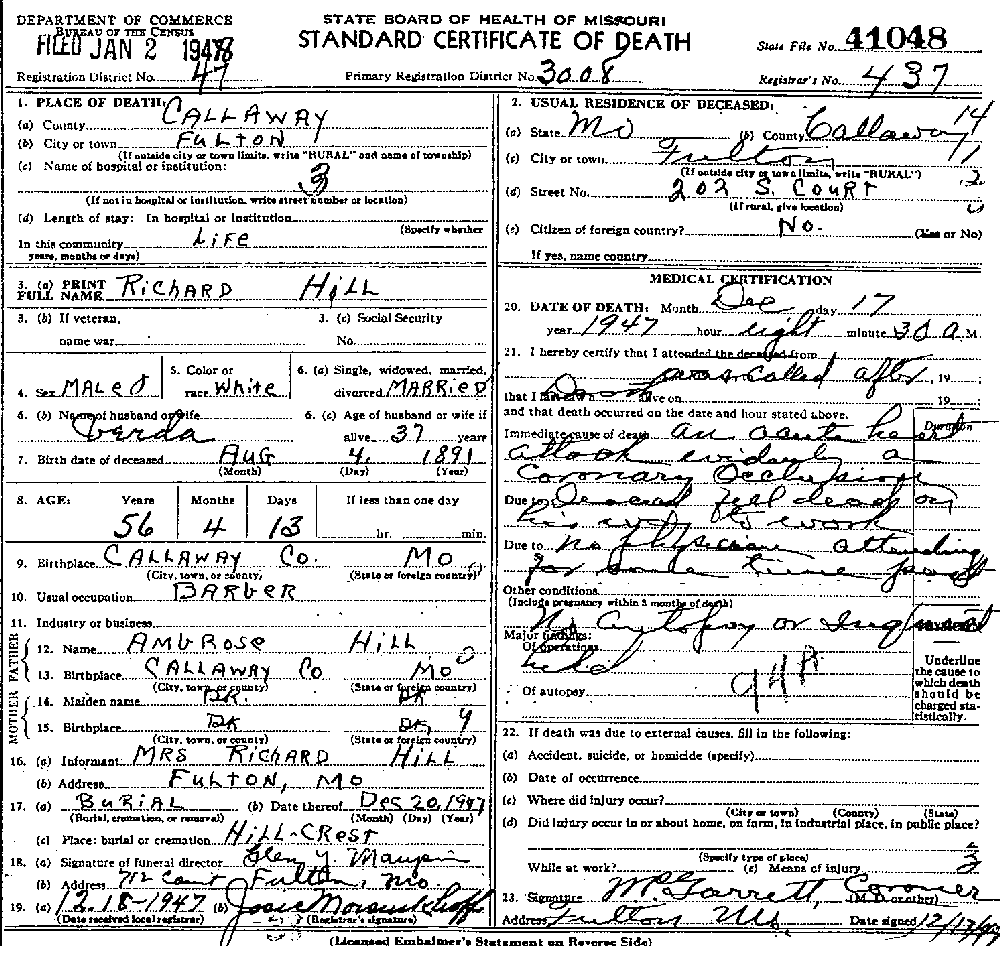 DEPARTMENT OF COMMERCE
BUREAU OF THE CENSUS
FILED JAN 2 1948
STATE BOARD OF HEALTH OF MISSOURI
STANDARD CERTIFICATE OF DEATH
State File No. 41048
Registration District No. 47
Primary Registration District No. 3008
Registrar's No. 437
1. PLACE OF DEATH:
(a) County CALLAWAY
(b) City or town FULTON
(If outside city or town limits, write "RURAL" and name of township)
(c) Name of hospital or institution:
3
(If not in hospital or institution, write street number or location)
(d) Length of stay: In hospital or institution
(Specify whether
In this community LIFE
years, months or days)
3. (a) PRINT FULL NAME RICHARD HILL
3. (b) If veteran,
name war
3. (c) Social Security
No.
4. Sex MALE
5. Color or
race White
6. (a) Single, widowed, married,
divorced MARRIED
6. (b) Name of husband or wife
Verda
6. (c) Age of husband or wife if
alive 37 years
7. Birth date of deceased AUG 4, 1891
(Month) (Day) (Year)
8. AGE: Years Months Days If less than one day
56 4 13 hr. min.
9. Birthplace CALLAWAY CO. MO
(City, town, or county) (State or foreign country)
10. Usual occupation BARBER
11. Industry or business
FATHER
12. Name AMBROSE HILL
13. Birthplace CALLAWAY CO MO
(City, town or county) (State or foreign country)
MOTHER
14. Maiden name DK. DK
15. Birthplace DK DK 9
(City, town, or county) (State or foreign country)
16. (a) Informant MRS RICHARD HILL
(b) Address FULTON, MO
17. (a) BURIAL (b) Date thereof Dec 20, 1947
(Burial, cremation, or removal) (Month) (Day) (Year)
(c) Place: burial or cremation HILL-CREST
18. (a) Signature of funeral director Glen Y. Maupin
(b) Address 712 Court Fulton, Mo.
19. (a) 12-18-1947 (b) Josie
(Date received local registrar) (Registrar's signature)
2. USUAL RESIDENCE OF DECEASED:
(a) State Mo (b) County Callaway 14
(c) City or town Fulton 1
(If outside city or town limits, write "RURAL")
(d) Street No. 202 S. COURT
(If rural, give location)
(e) Citizen of foreign country? No. (Yes or No)
If yes, name country
MEDICAL CERTIFICATION
20. DATE OF DEATH: Month Dec day 17
year 1947 hour eight minute 30 A M.
21. I hereby certify that I attended the deceased from
was called after, 19
that I last saw alive on 19
and that death occurred on the date and hour stated above.
Duration
Immediate cause of death an acute heart
attack evidently a
Coronary Occlusion
Due to Deceased fell dead on
his way to work
Due to no physician attending
for some time past
Other conditions
(Include pregnancy within 3 months of death)
No Autopsy or Inquest
Major findings:
Of operations held
Of autopsy 94A
Underline
the cause to
which death
should be
charged sta-
tistically.
22. If death was due to external causes, fill in the following:
(a) Accident, suicide, or homicide (specify)
(b) Date of occurrence
(c) Where did injury occur?
(City or town) (County) (State)
(d) Did injury occur in or about home, on farm, in industrial place, in public place?
(Specify type of place)
While at work? (e) Means of injury
23. Signature Garrett Coroner
(M.D. or other)
Address Fulton Mo. Date signed 12/17/47
(Licensed Embalmer's Statement on Reverse Side)